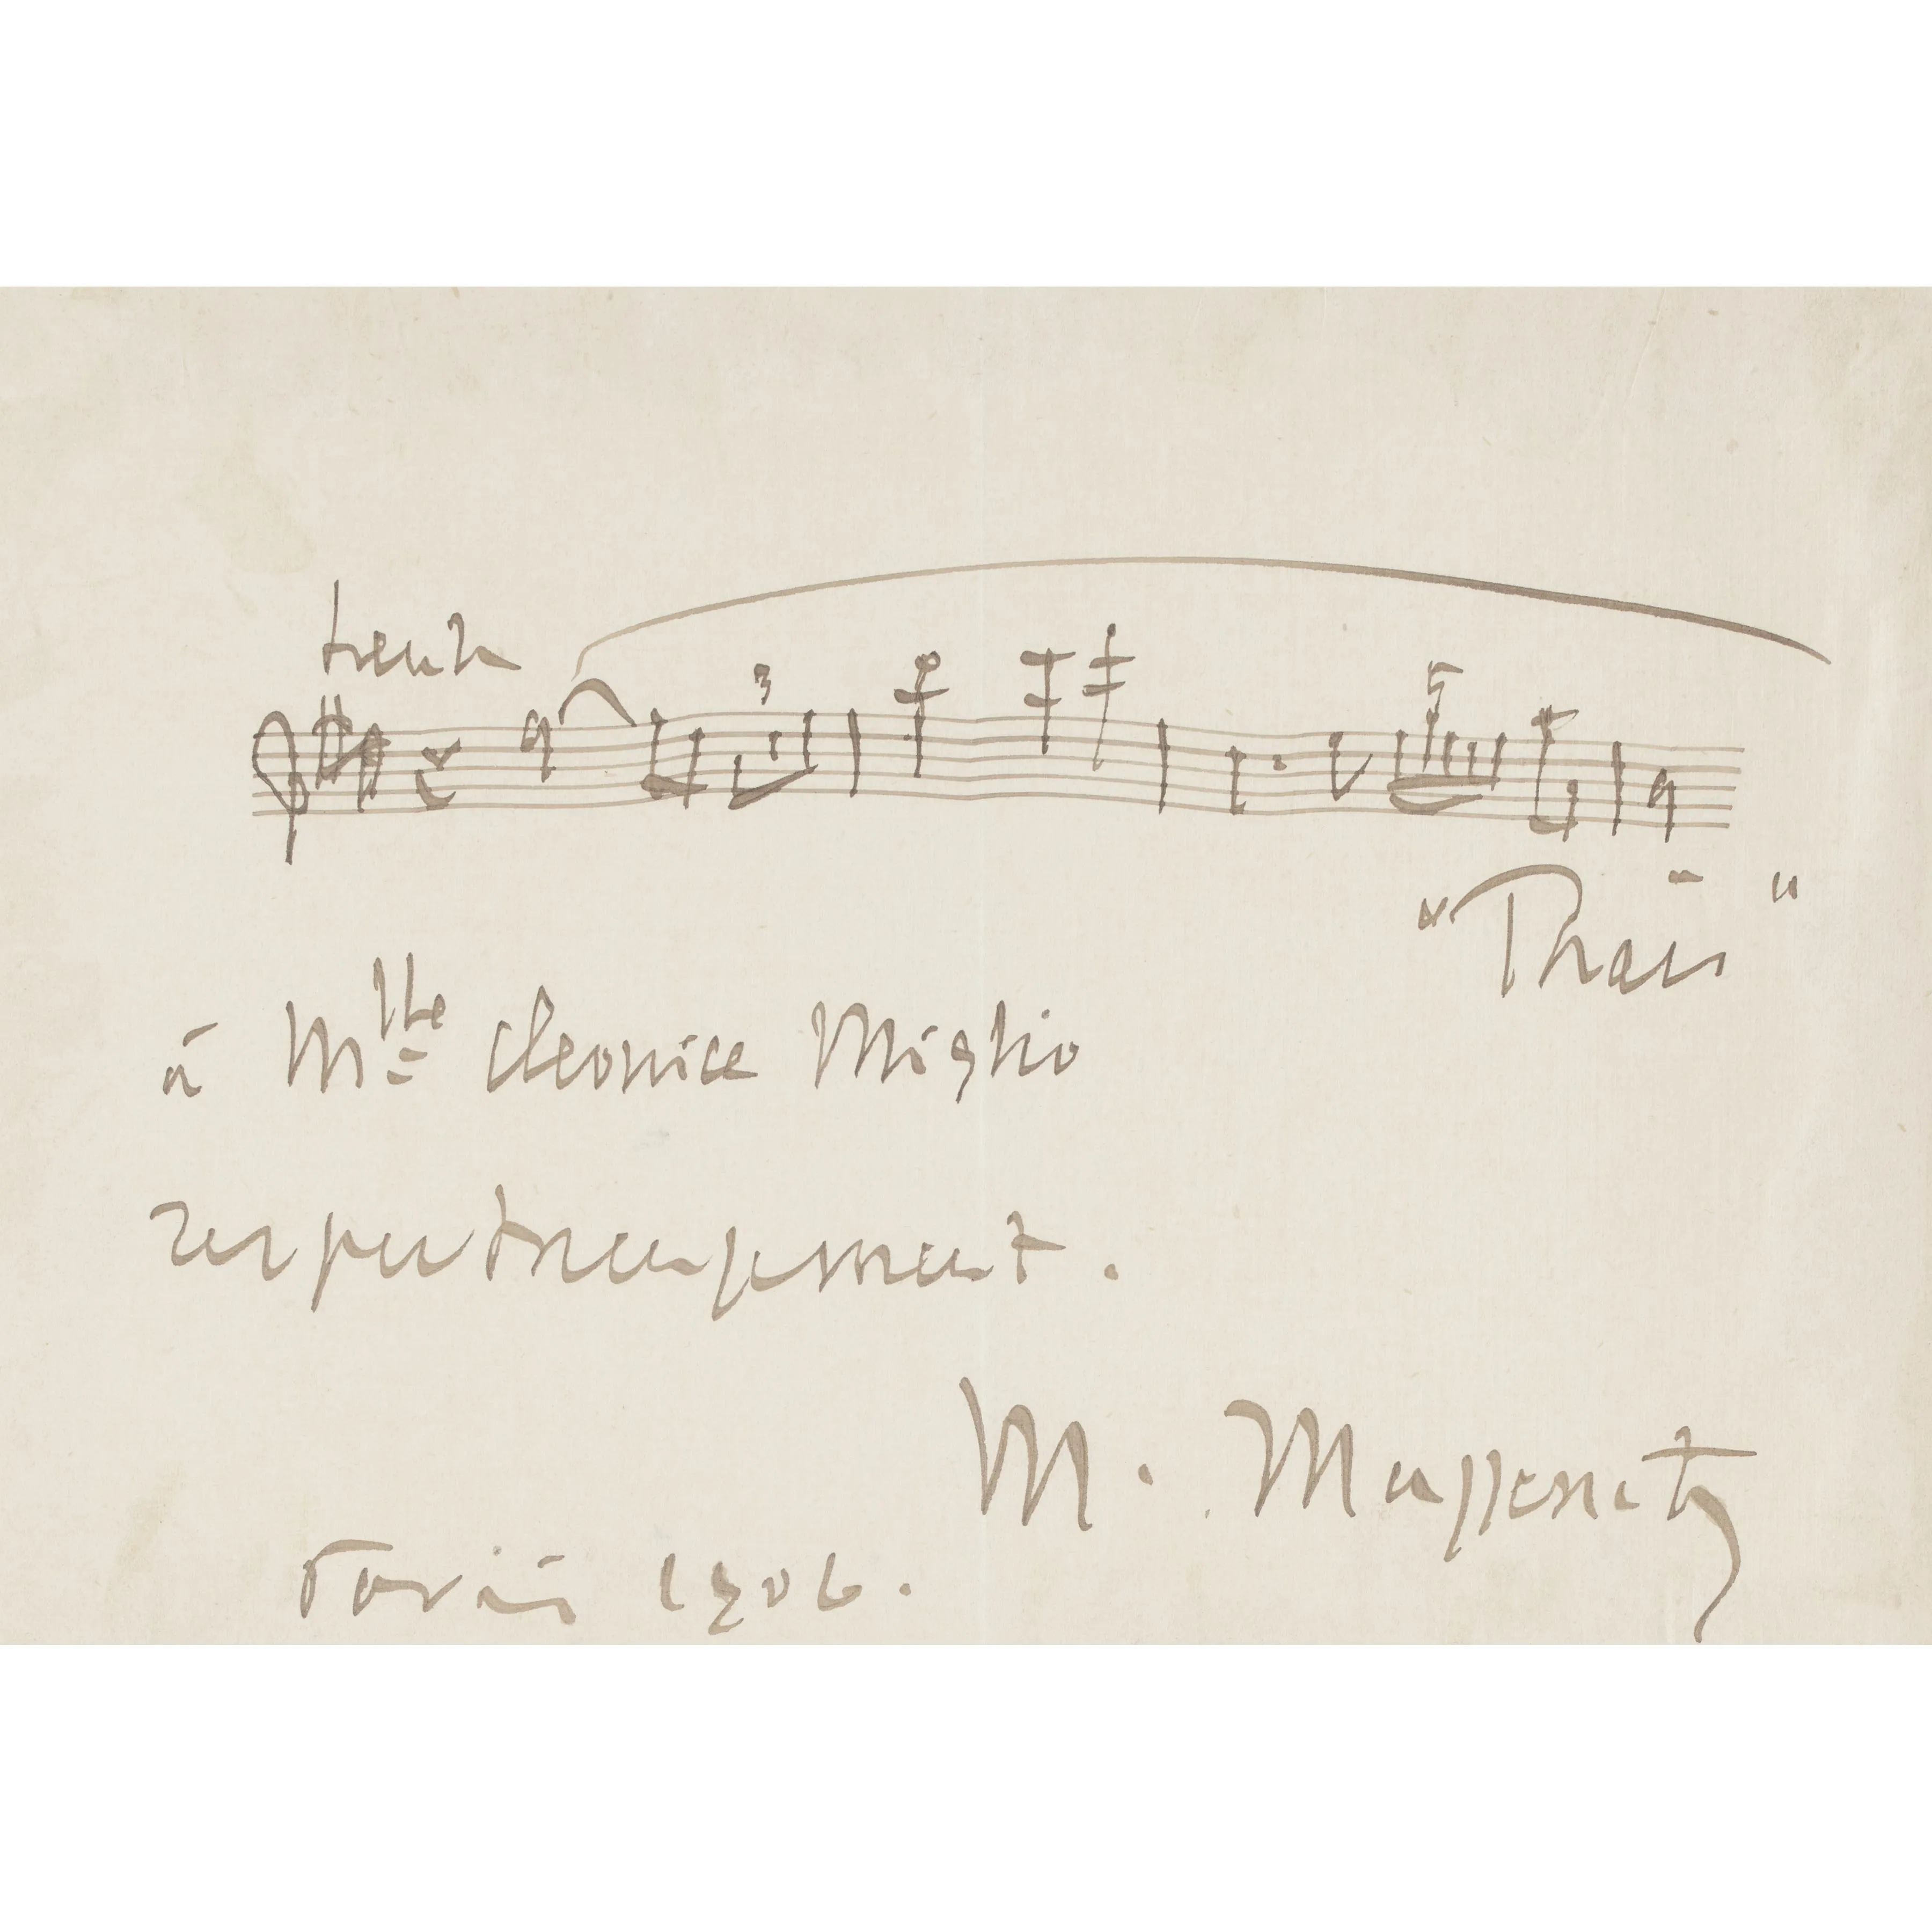 3
5
"Thaïs"
à Mlle Cleonice Miglio
respectueusement.
M. Massenet
Paris 1906.